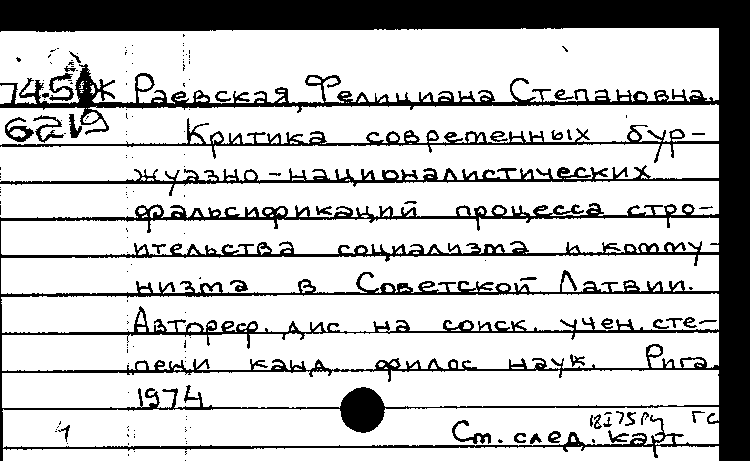 Раевская, Фелициана Степановна.
6219 Критика современных бур-
жуазно-националистических
фальсификаций процесса стро-
ительства социализма и комму-
низма в Советской Латвии.
Автореф. дис. на соиск. учен. сте-
пени канд. филос наук. Рига.
1974
Ст. след. карт.